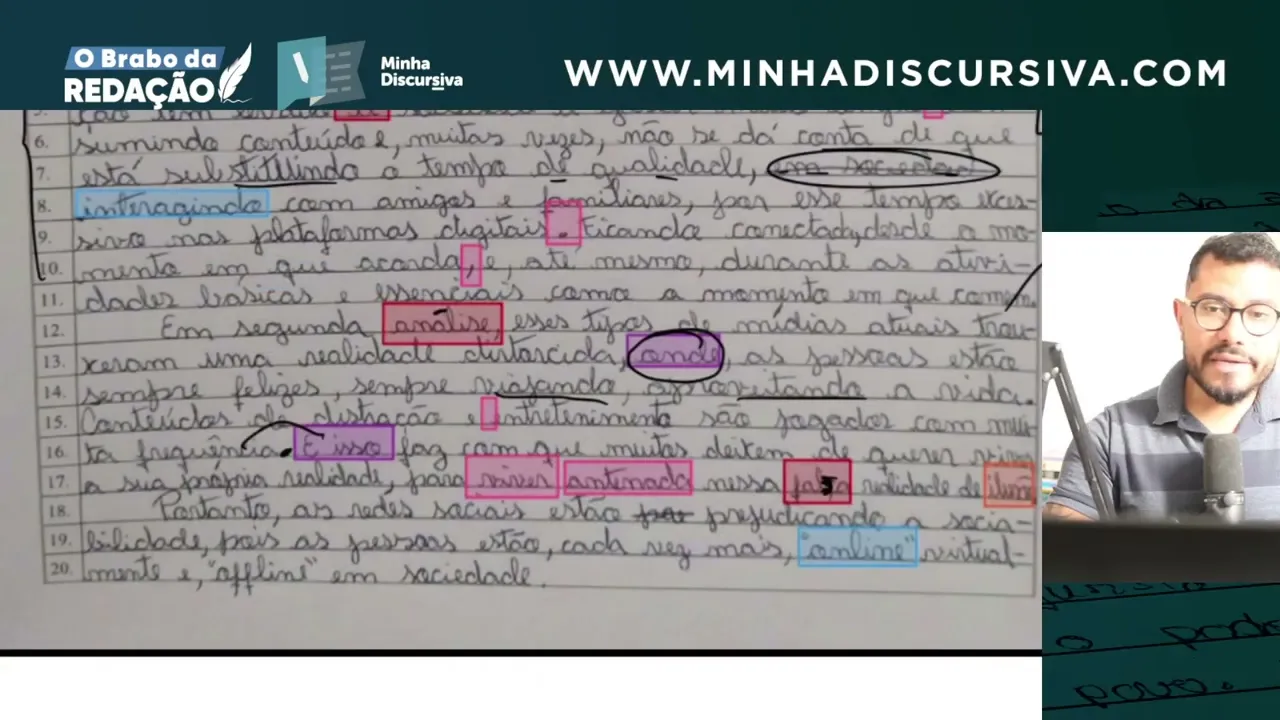 O Brabo da
REDAÇÃO
Minha
Discursiva
WWW.MINHADISCURSIVA.COM
6. sumindo conteúdo e, muitas vezes, não se dá conta de que
7. está substituindo o tempo de qualidade, em sociedade
8. interagindo com amigos e familiares, por esse tempo exces-
9. sivo nas plataformas digitais. Ficando conectado, desde o mo-
10. mento em que acorda, e, até mesmo, durante as ativi-
11. dades básicas e essenciais como o momento em que comem.
12. Em segunda análise, esses typos de mídias atuais trou-
13. xeram uma realidade distorcida, onde, as pessoas estão
14. sempre felizes, sempre viajando, aproveitando a vida.
15. Conteúdos de distração e entretenimento são jogados com mui-
16. ta frequência. E isso faz com que muitos deixem de querer viver
17. a sua própria realidade, para viver antenado nessa realidade de
18. Portanto, as redes sociais estão prejudicando a socia-
19. bilidade, pois as pessoas estão, cada vez mais, "online" virtual-
20. mente e, "offline" em sociedade.
o
povo.